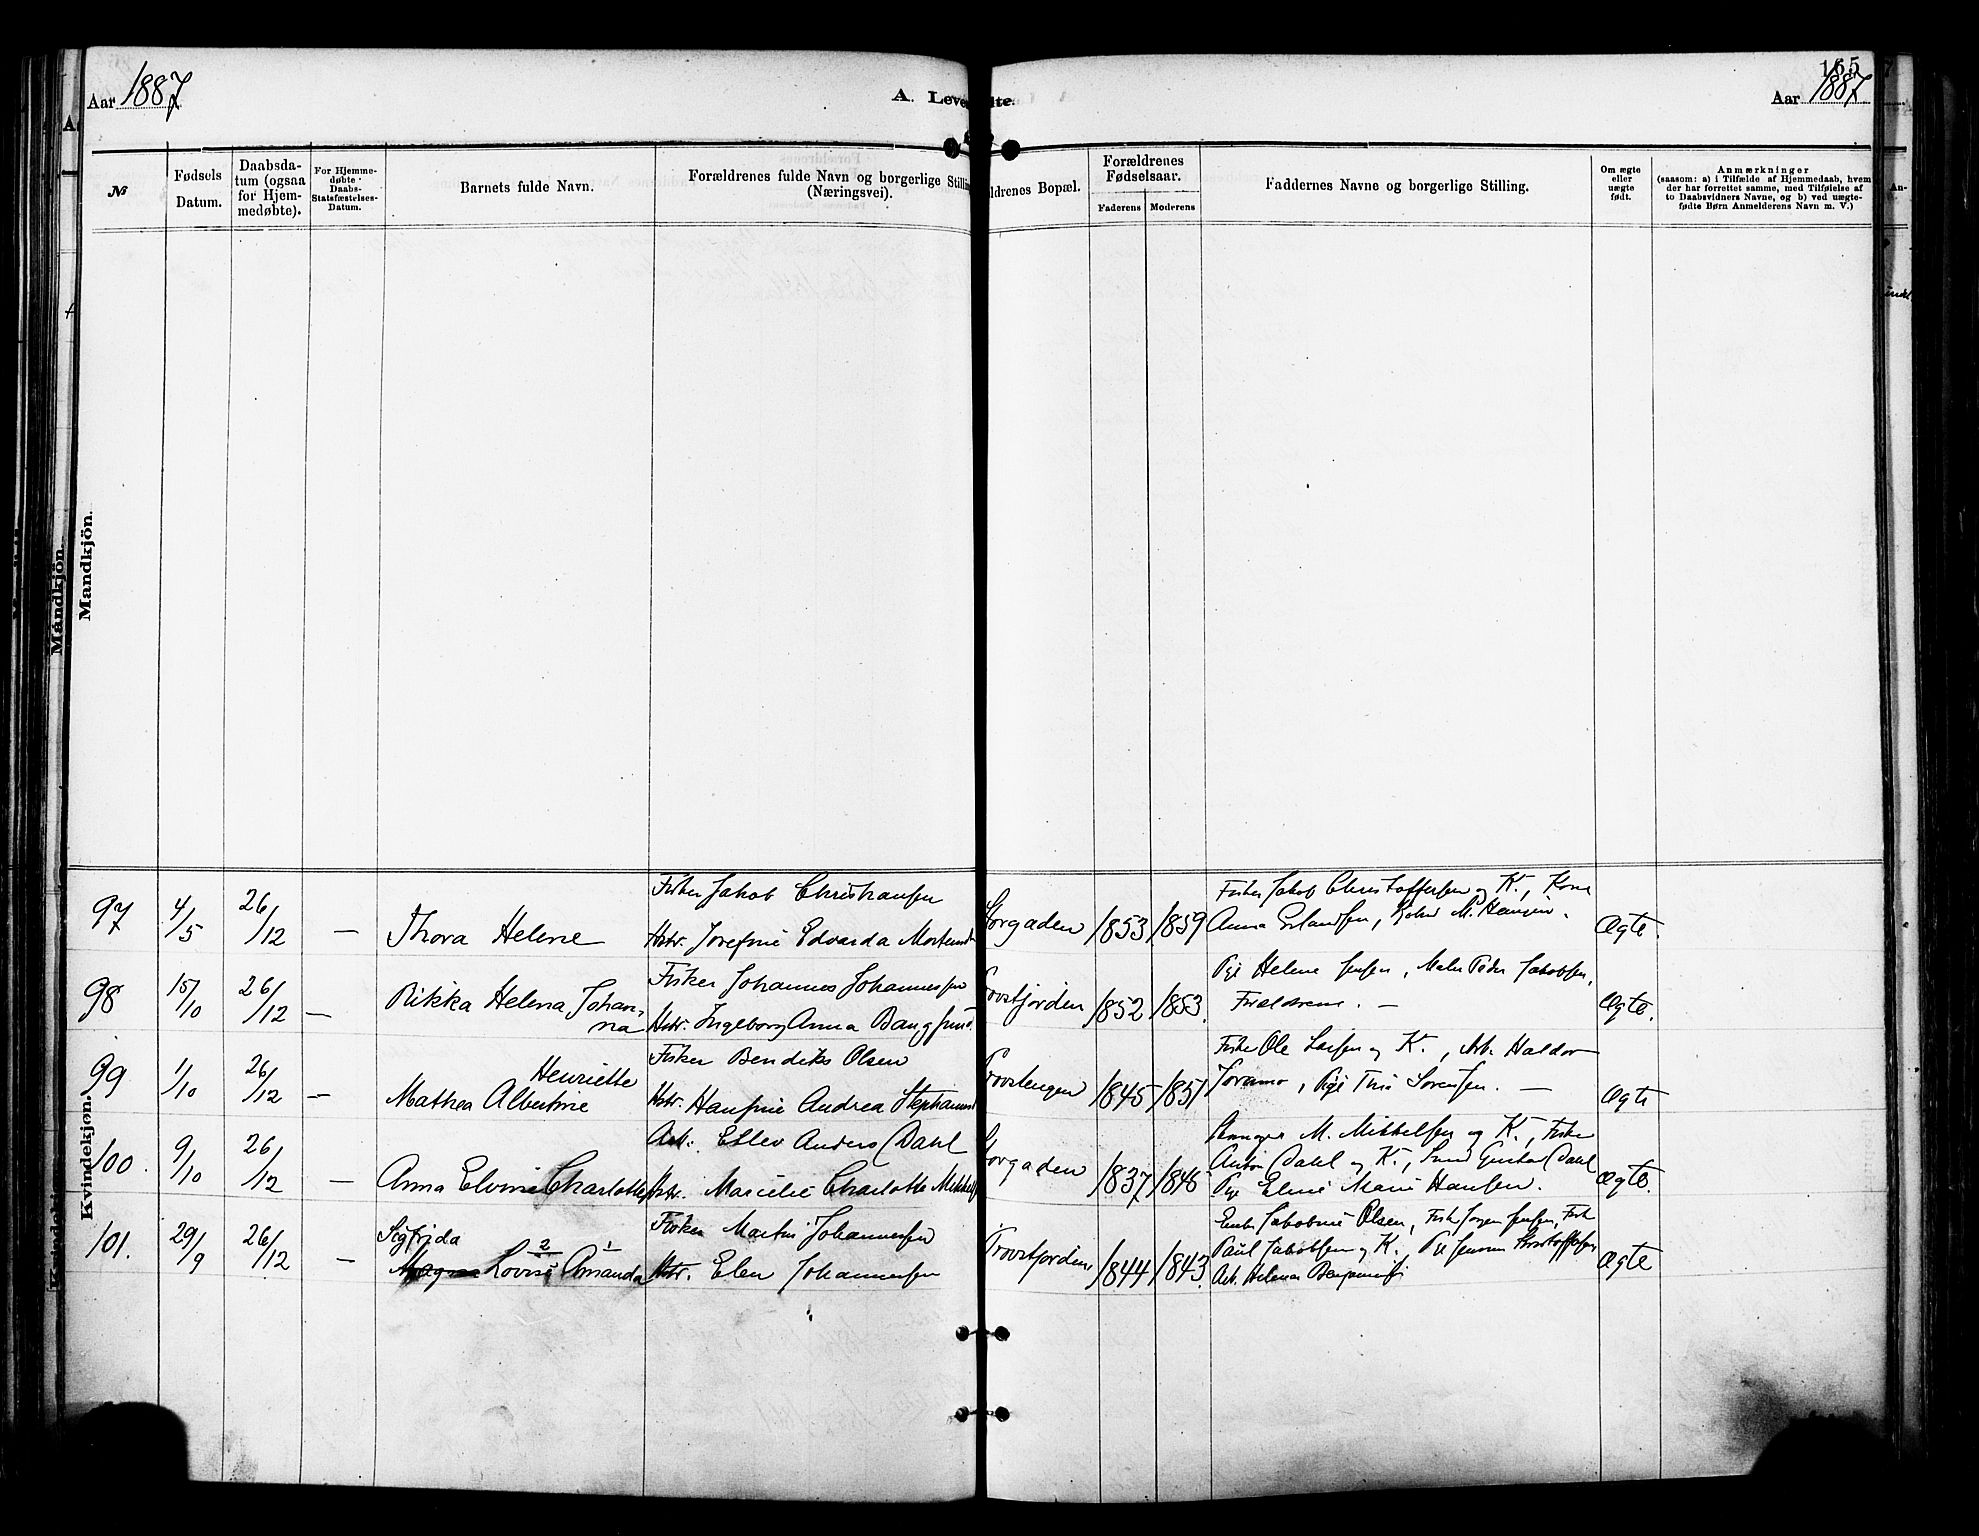 165
Aar 1887
A. Leve
lte.
Aar 1887
№
Fødsels Datum.
Daabsdatum (ogsaa for Hjemmedøbte).
For Hjemmedøbte Daabs-Statsfæstelses-Datum.
Barnets fulde Navn.
Forældrenes fulde Navn og borgerlige Stilling (Næringsvei).
ldrenes Bopæl.
Forældrenes Fødselsaar.
Faderens Moderens
Faddernes Navne og borgerlige Stilling.
Om ægte eller uægte født.
Anmærkninger
(saasom: a) i Tilfælde af Hjemmedaab, hvem
der har forrettet samme, med Tilføielse af
to Daabsvidners Navne, og b) ved uægte-
fødte Børn Anmelderens Navn m. V.)
Mandkjön.
Mandkjön.
Kvindekjön.
97 4/5 26/12 — Thora Helene
Fisker Jakob Christiansen
Hstr. Josefine Edvarda Mortens
Storgaden 1853 1859
Fisker Jakob Christoffersen og K., Kone
Anna Erlandsen, M. Hansen.
Ægte.
98 15/10 26/12 — Rikka Helena Johanna
Fisker Johannes Johannesen
Hstr. Ingeborg Anna Bangsund
Provstjorden 1852 1853.
Pige Helene Jensen, Maler Peder Jakobsen,
Forældrene. —
Ægte.
99 1/10 26/12 — Henriette
Mathea Albertine
Fisker Bendiks Olsen
Hstr. Hansine Andrea Stephans
Provstengen 1845 1851
Fisker Ole Larsen og K., Arb. Haldor
Joramo, Pige Trine Sørensen. —
Ægte
100. 9/10 26/12 — Anna Elvine Charlotte
Arb. Ellev Anders Dahl
Hstr. Marielie Charlotte Mikkels
Storgaden 1837 1846
M. Mikkelsen og K., Fisker
Anton Dahl og K., Gustav Dahl
Pige Eline Marie Hansen.
Ægte.
101. 29/9 26/12 — Sigfrida
Magna Lovise 2 Amanda 1
Fisker Martin Johannesen
Hstr. Elen Johannesen
Provstjorden 1844 1843.
Enke Jakobine Olsen, Fisk Jørgen Jensen, Fisk
Paul Jakobsen og K., Pige Kristoffersen
Arb. Helmer Benjaminsen
Ægte